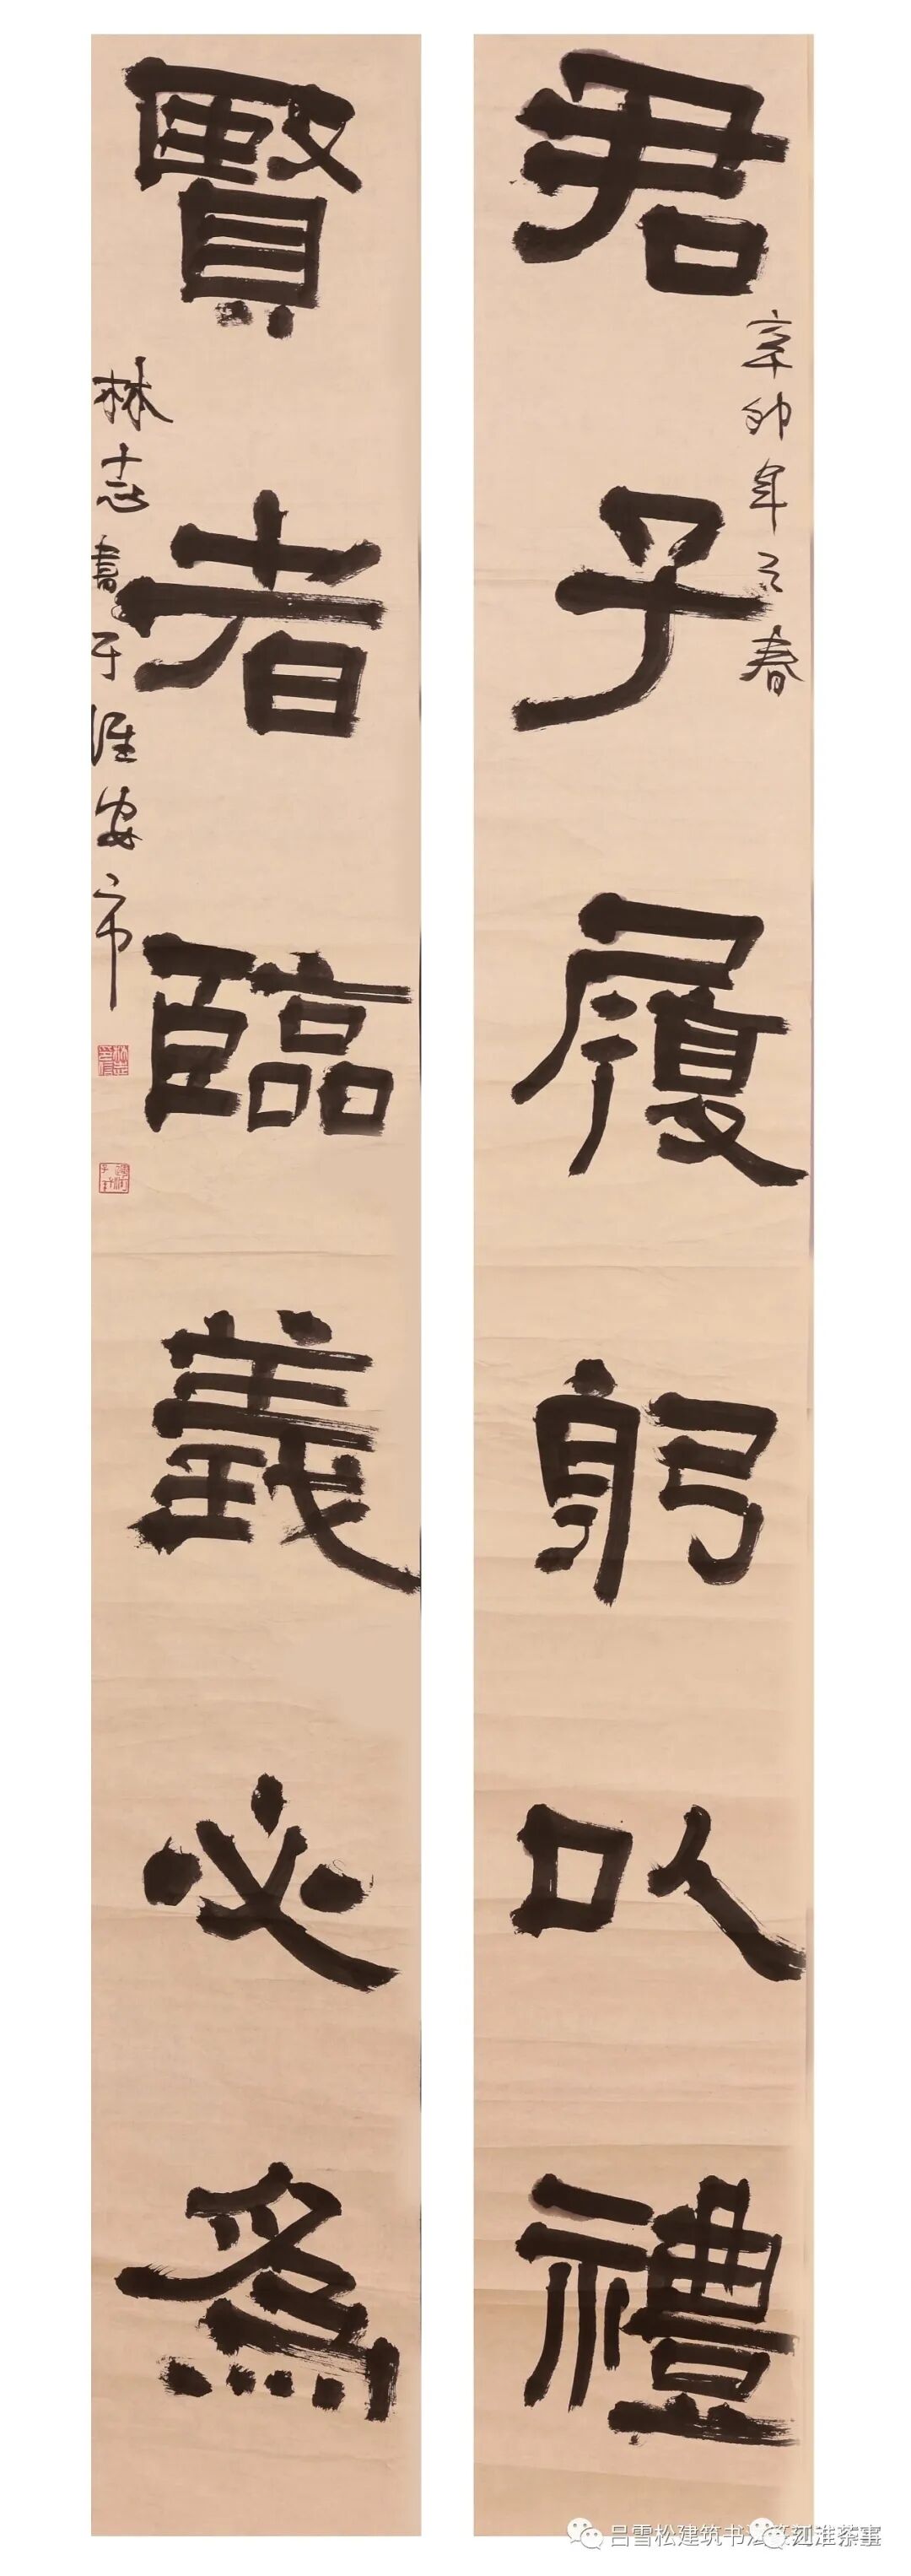 君子履躬以禮
辛卯年之春
賢者臨義必為
林志書于淮安市
吕雪松建筑书法篆刻
江淮茶事